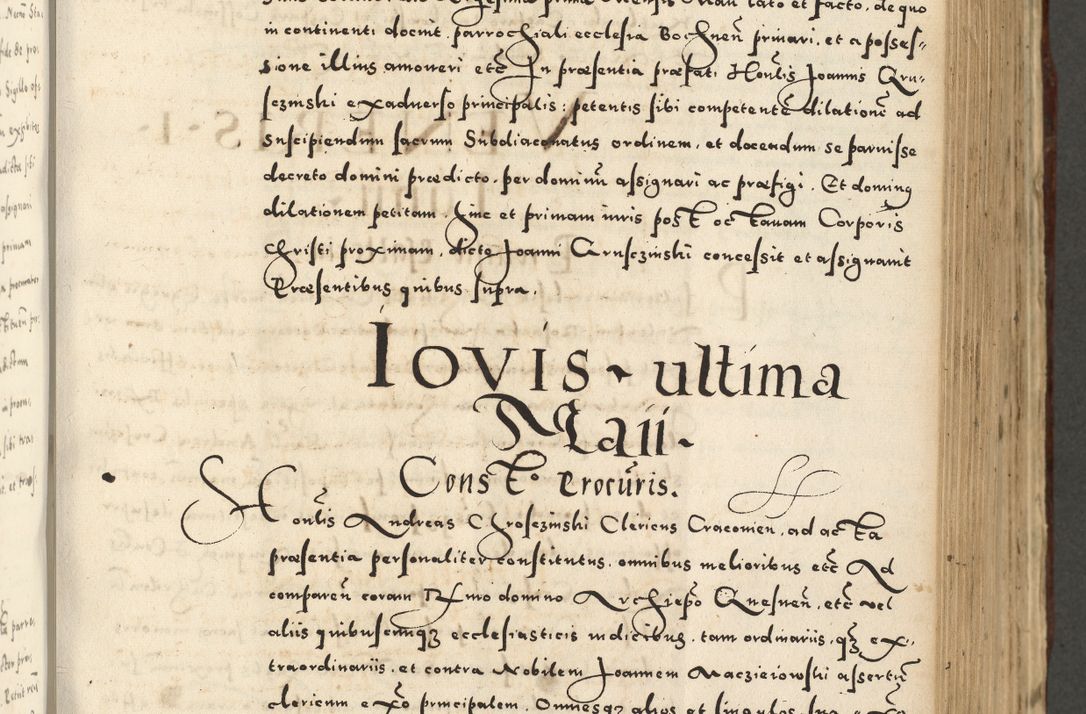 in continenti docint, parrochiali ecclesia Bochnen̄ priuari, et a posses-
sione illius amoueri etc̄ In præsentia præfati Honlis Joannis Gru-
sczinski ex aduerso principalis: petentis sibi competentē dilationē ad
suscipiendum sacrum Subdiaconatus ordinem, et docendum se paruisse
decreto domini prædicto, per dominū assignari ac præfigi. Et dominꝯ
dilationem petitam, hinc et primam iuris post octauam Corporis
Christi proximam, dicto Joanni Grusczinski concessit et assignauit
Præsentibus quibus supra.
Iovis ~ ultima
Maii ~
Const° Procūris.
Honlis Andreas Chrosczinski Clericus Cracouien, ad acta
præsentia personaliter constitutus, omnibus melioribus etc̄ Ad
comparen̄ coram Rmo domino Archiepō Gnesnen̄, etc̄ vel
aliis quibuscunqꝫ ecclesiasticis iudicibus, tam ordinariis, qꝫ ex-
traordinariis, et contra Nobilem Joannem Maczieiowski assertū
clericum ex̄o principalem, Omnesqꝫ alios et singulos